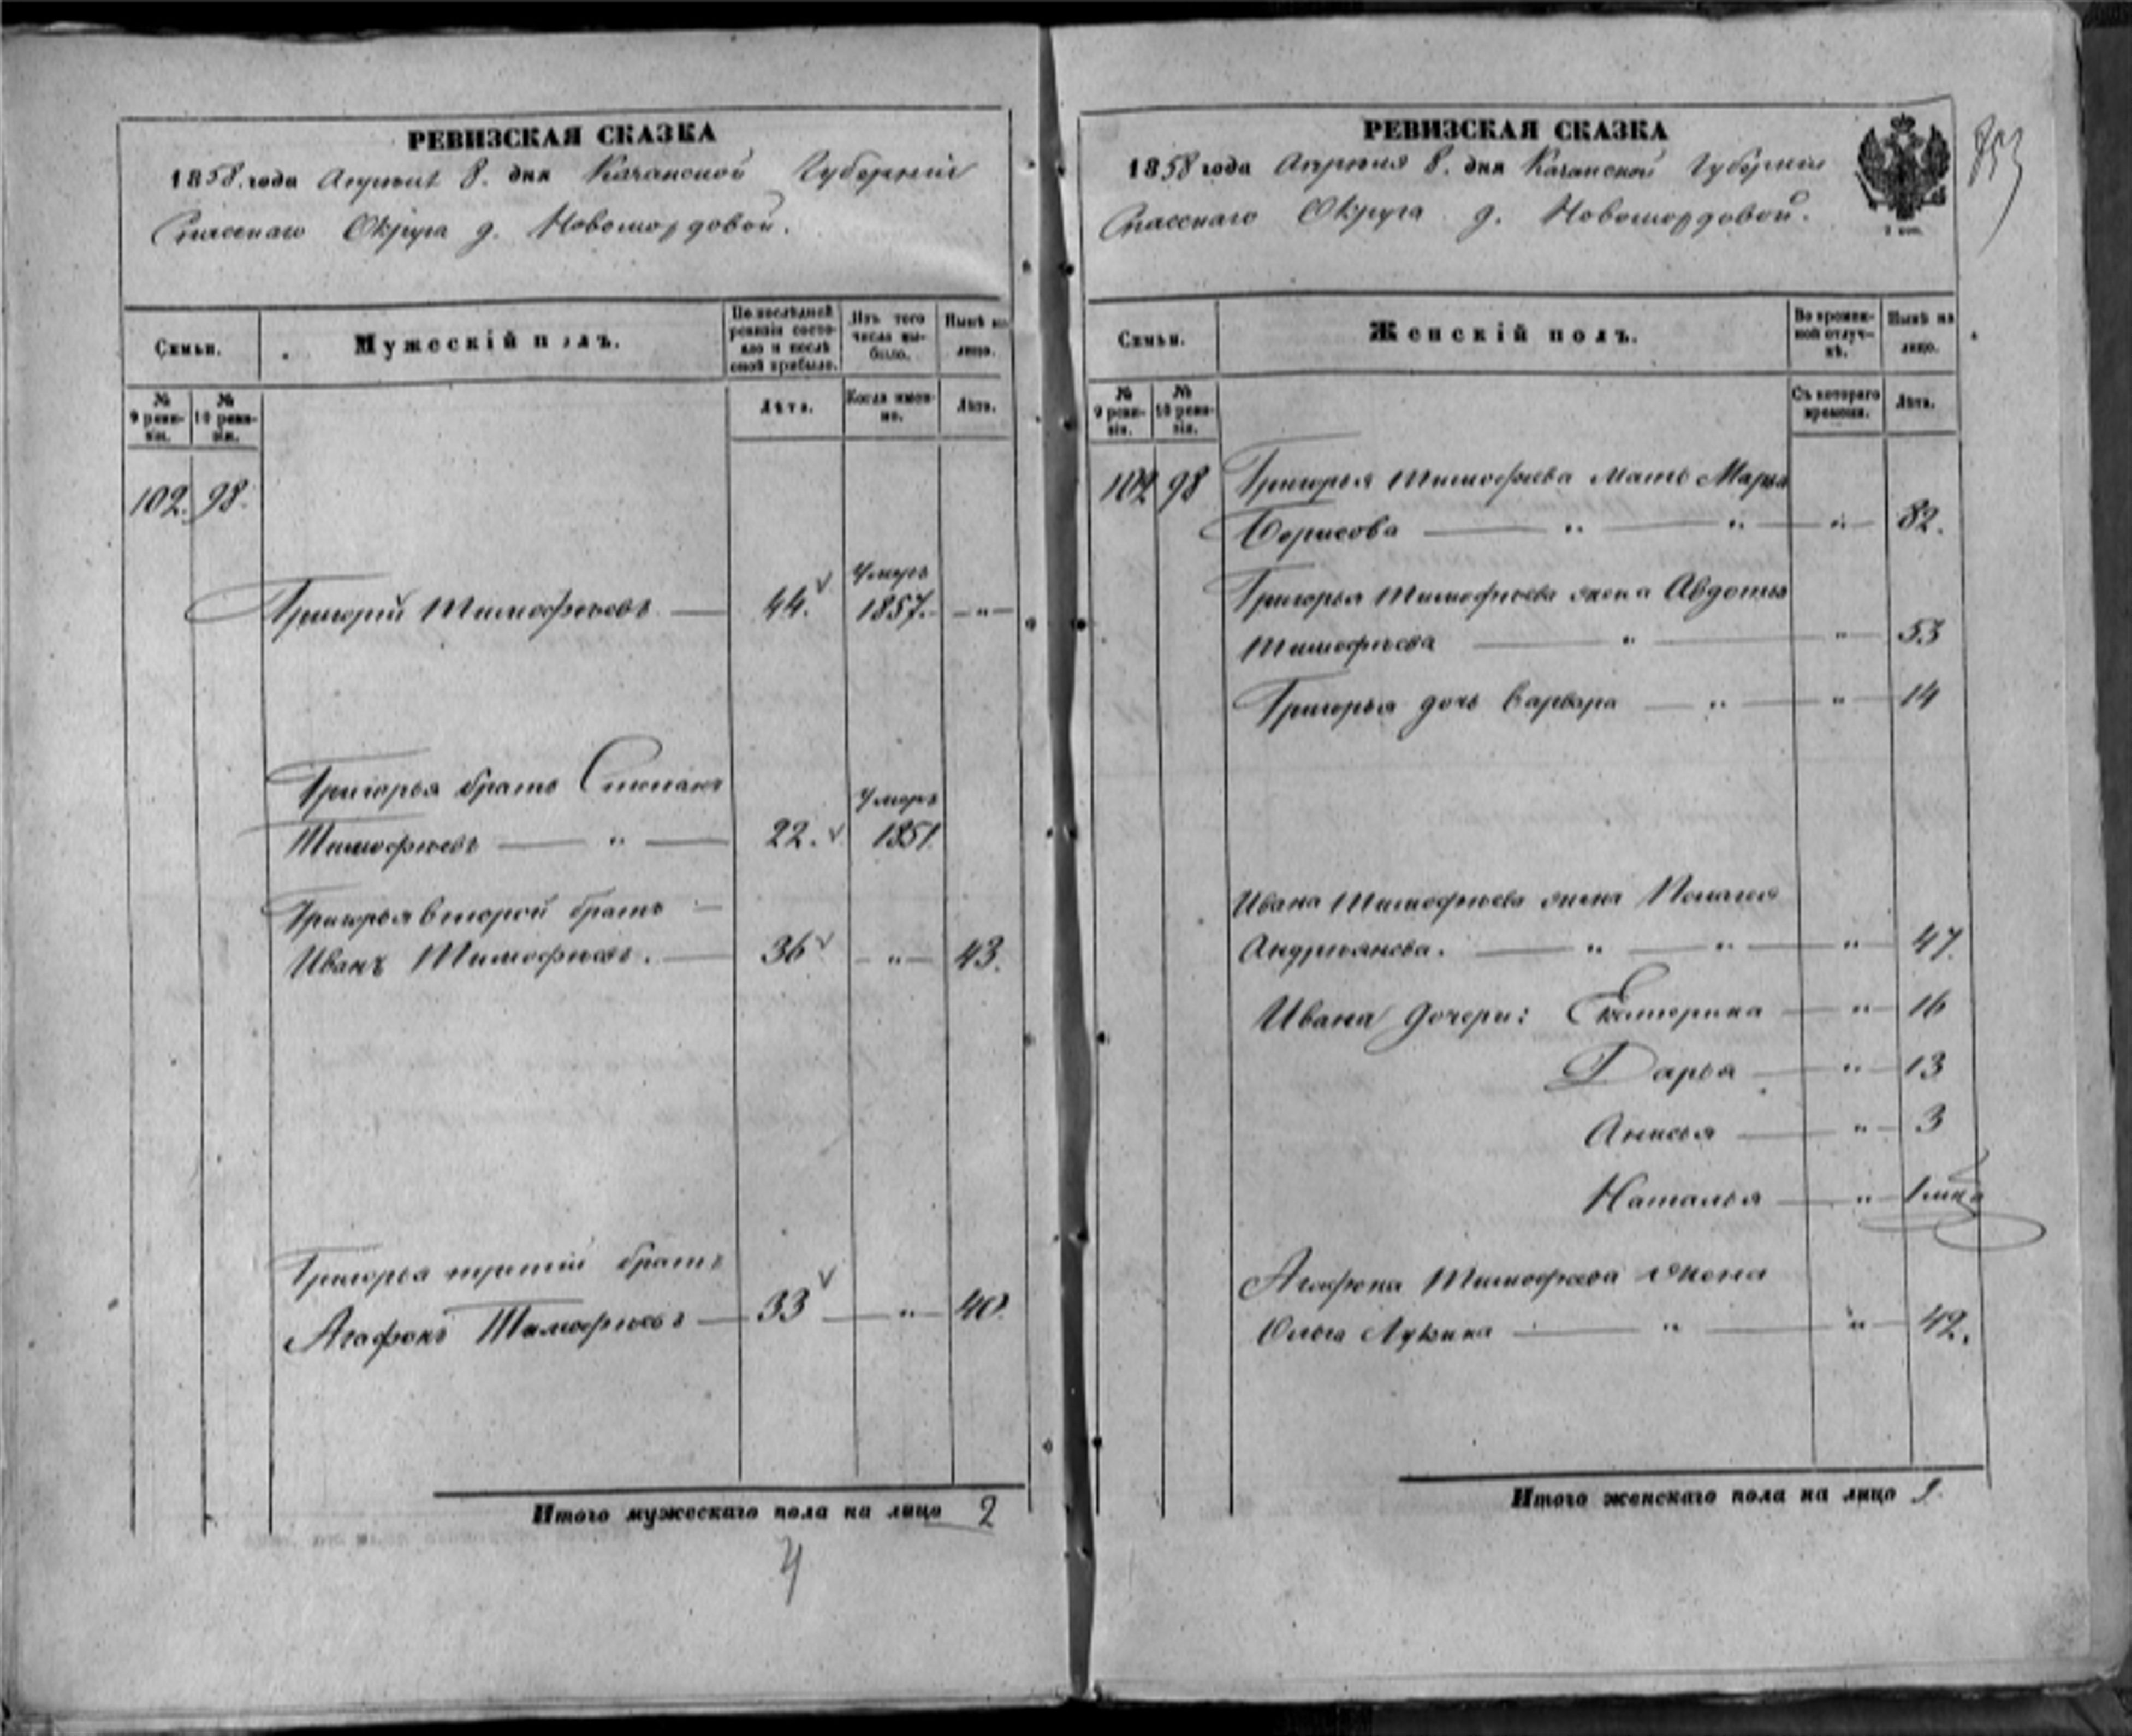 РЕВИЗСКАЯ СКАЗКА
1858 года Апреля 8. дня Казанской Губернии
Спасскаго Округа д. Новомордовой.
Семьи.
Мужескій полъ.
По послѣдней ревизіи состояло и послѣ оной прибыло.
Изъ того числа выбыло.
Нынѣ на лицо.
№ 9 ревизіи.
№ 10 ревизіи.
Лѣта.
Когда именно.
Лѣта.
102. 98.
Григорій Тимофѣевъ — 44. Умеръ 1857. — " —
Григорья братъ Степанъ
Тимофѣевъ — " — 22. Умеръ 1851
Григорья второй братъ —
Иванъ Тимофѣевъ. — 36 — " — 43.
Григорья третій братъ
Агафонъ Тимофѣевъ — 33 — " — 40.
Итого мужескаго пола на лицо 2
4
РЕВИЗСКАЯ СКАЗКА
1858 года Апреля 8. дня Казанской Губерніи
Спасскаго Округа д. Новомордовой.
2 коп.
853
Семьи.
Женскій полъ.
Во временной отлучкѣ.
Нынѣ на лицо.
№ 9 ревизіи.
№ 10 ревизіи.
Съ котораго времени.
Лѣта.
102 98 Григорья Тимофѣева мать Марья
Борисова — " — " — " — 82.
Григорья Тимофѣева жена Авдотья
Тимофѣева — " — " — 53
Григорья дочь Варвара — " — " — 14
Ивана Тимофѣева жена Пелагея
Андреянова. — " — " — " — 47.
Ивана дочери: Екатерина — " — 16
Дарья — " — 13
Анисья — " — 3
Наталья — " —
Агафона Тимофѣева жена
Ольга Лукина — " — " — 42.
Итого женскаго пола на лицо 9.